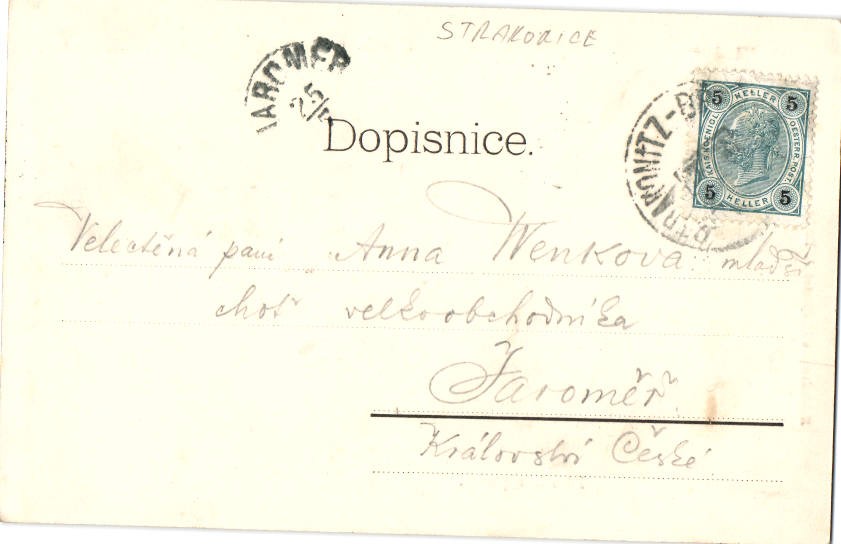 STRAKONICE
JAROMĚŘ
25/
Dopisnice.
STRAKONITZ-
5 HELLER 5
KAIS. KOENIGL. OESTERR. POST.
5 HELLER 5
Velectěná paní Anna Wenkova mladší
choť velkoobchodníka
Jaroměř
Království České